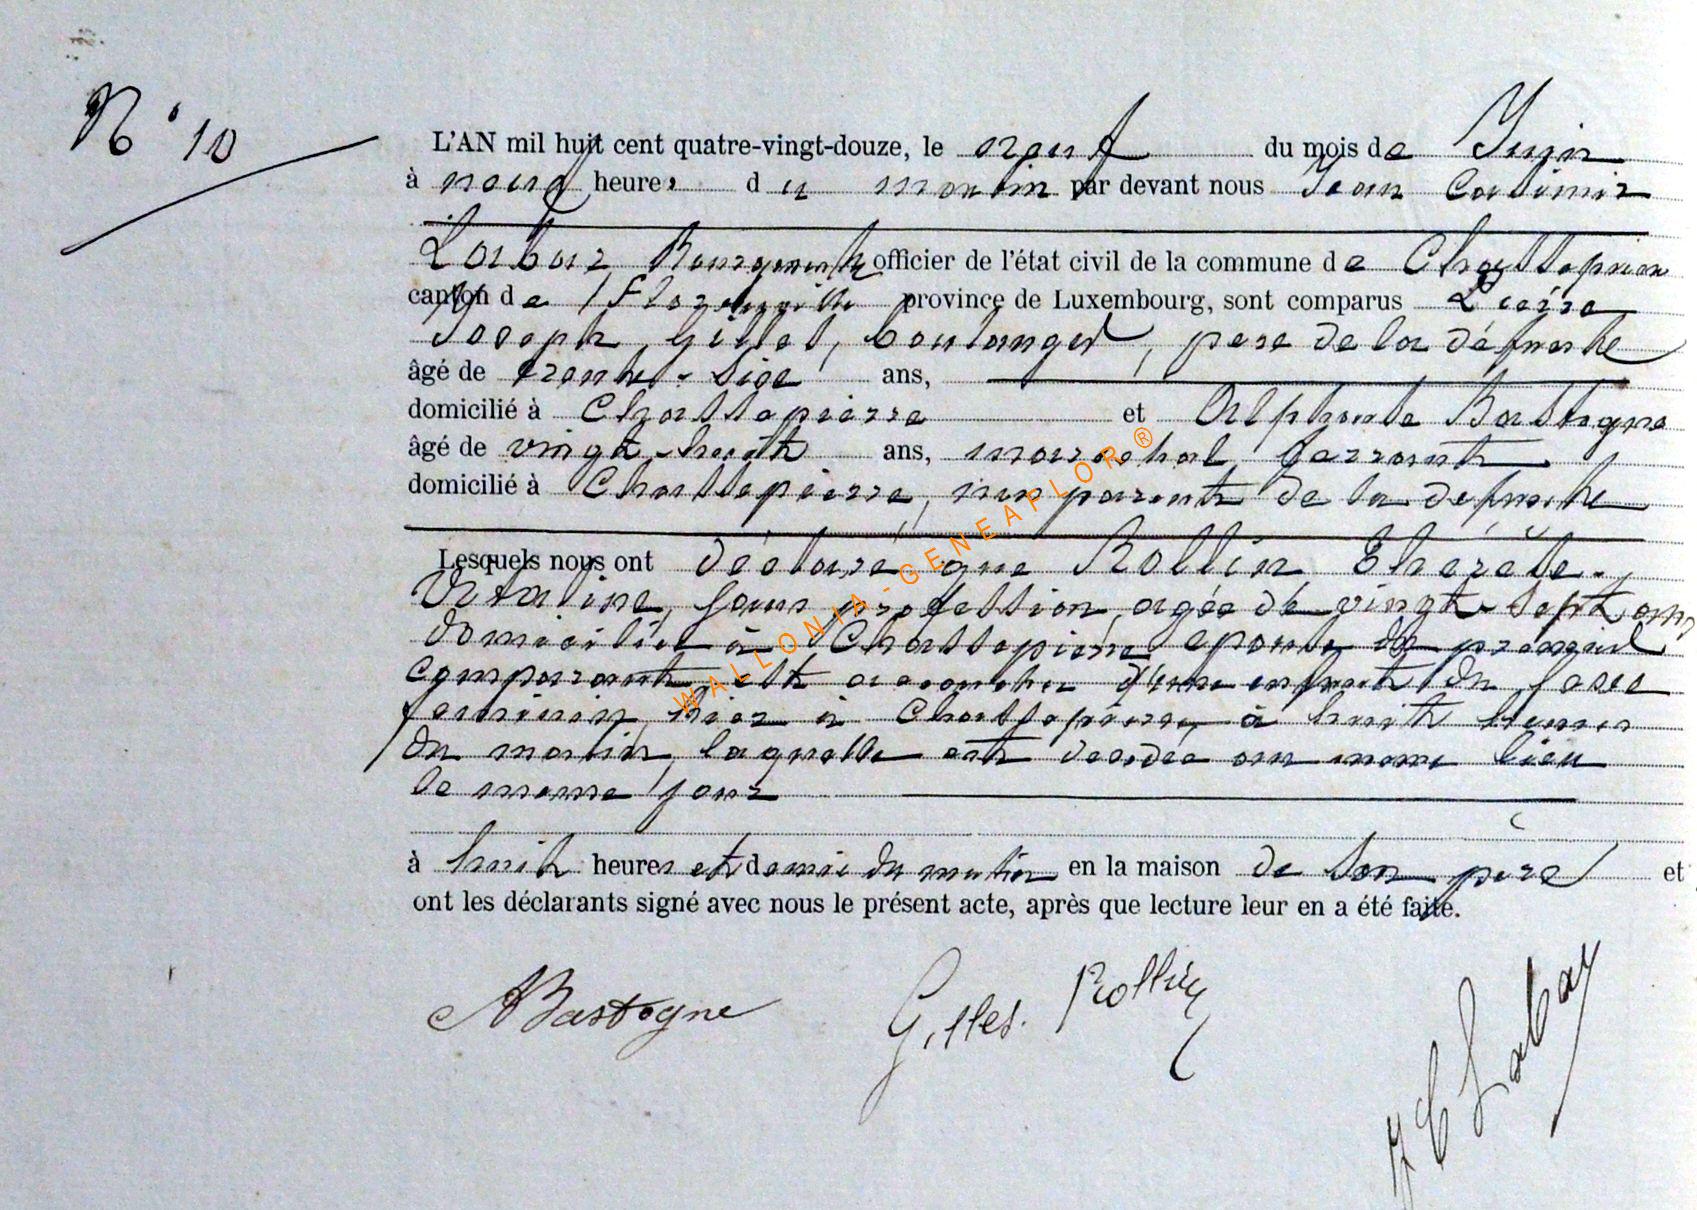 N° 10
L'AN mil huit cent quatre-vingt-douze, le neuf du mois de Juin
à neuf heures du matin par devant nous Jean Casimir
Labar, Bourgmestre officier de l'état civil de la commune de Chassepierre
canton de Florenville province de Luxembourg, sont comparus
Joseph Gilles, boulanger, pere de la défunte
âgé de trente-six ans,
domicilié à Chassepierre et Alphonse Bastogne
âgé de vingt-huit ans, marechal ferrant
domicilié à Chassepierre, non parent de la defunte
Lesquels nous ont déclaré que Rollin, Thérèse
Victorine, sans profession, agée de vingt-sept ans
domiciliée à Chassepierre épouse du premier
comparant, est accouchée d'un enfant du sexe
feminin, hier à Chassepierre, à huit heures
du matin, laquelle est decedée au meme lieu
le meme jour
à huit heures et demie du matin en la maison de son père et
ont les déclarants signé avec nous le présent acte, après que lecture leur en a été faite.
ABastogne
Gilles. Rollin
J C Labar
WALLONIA-GENEAFLOR ®